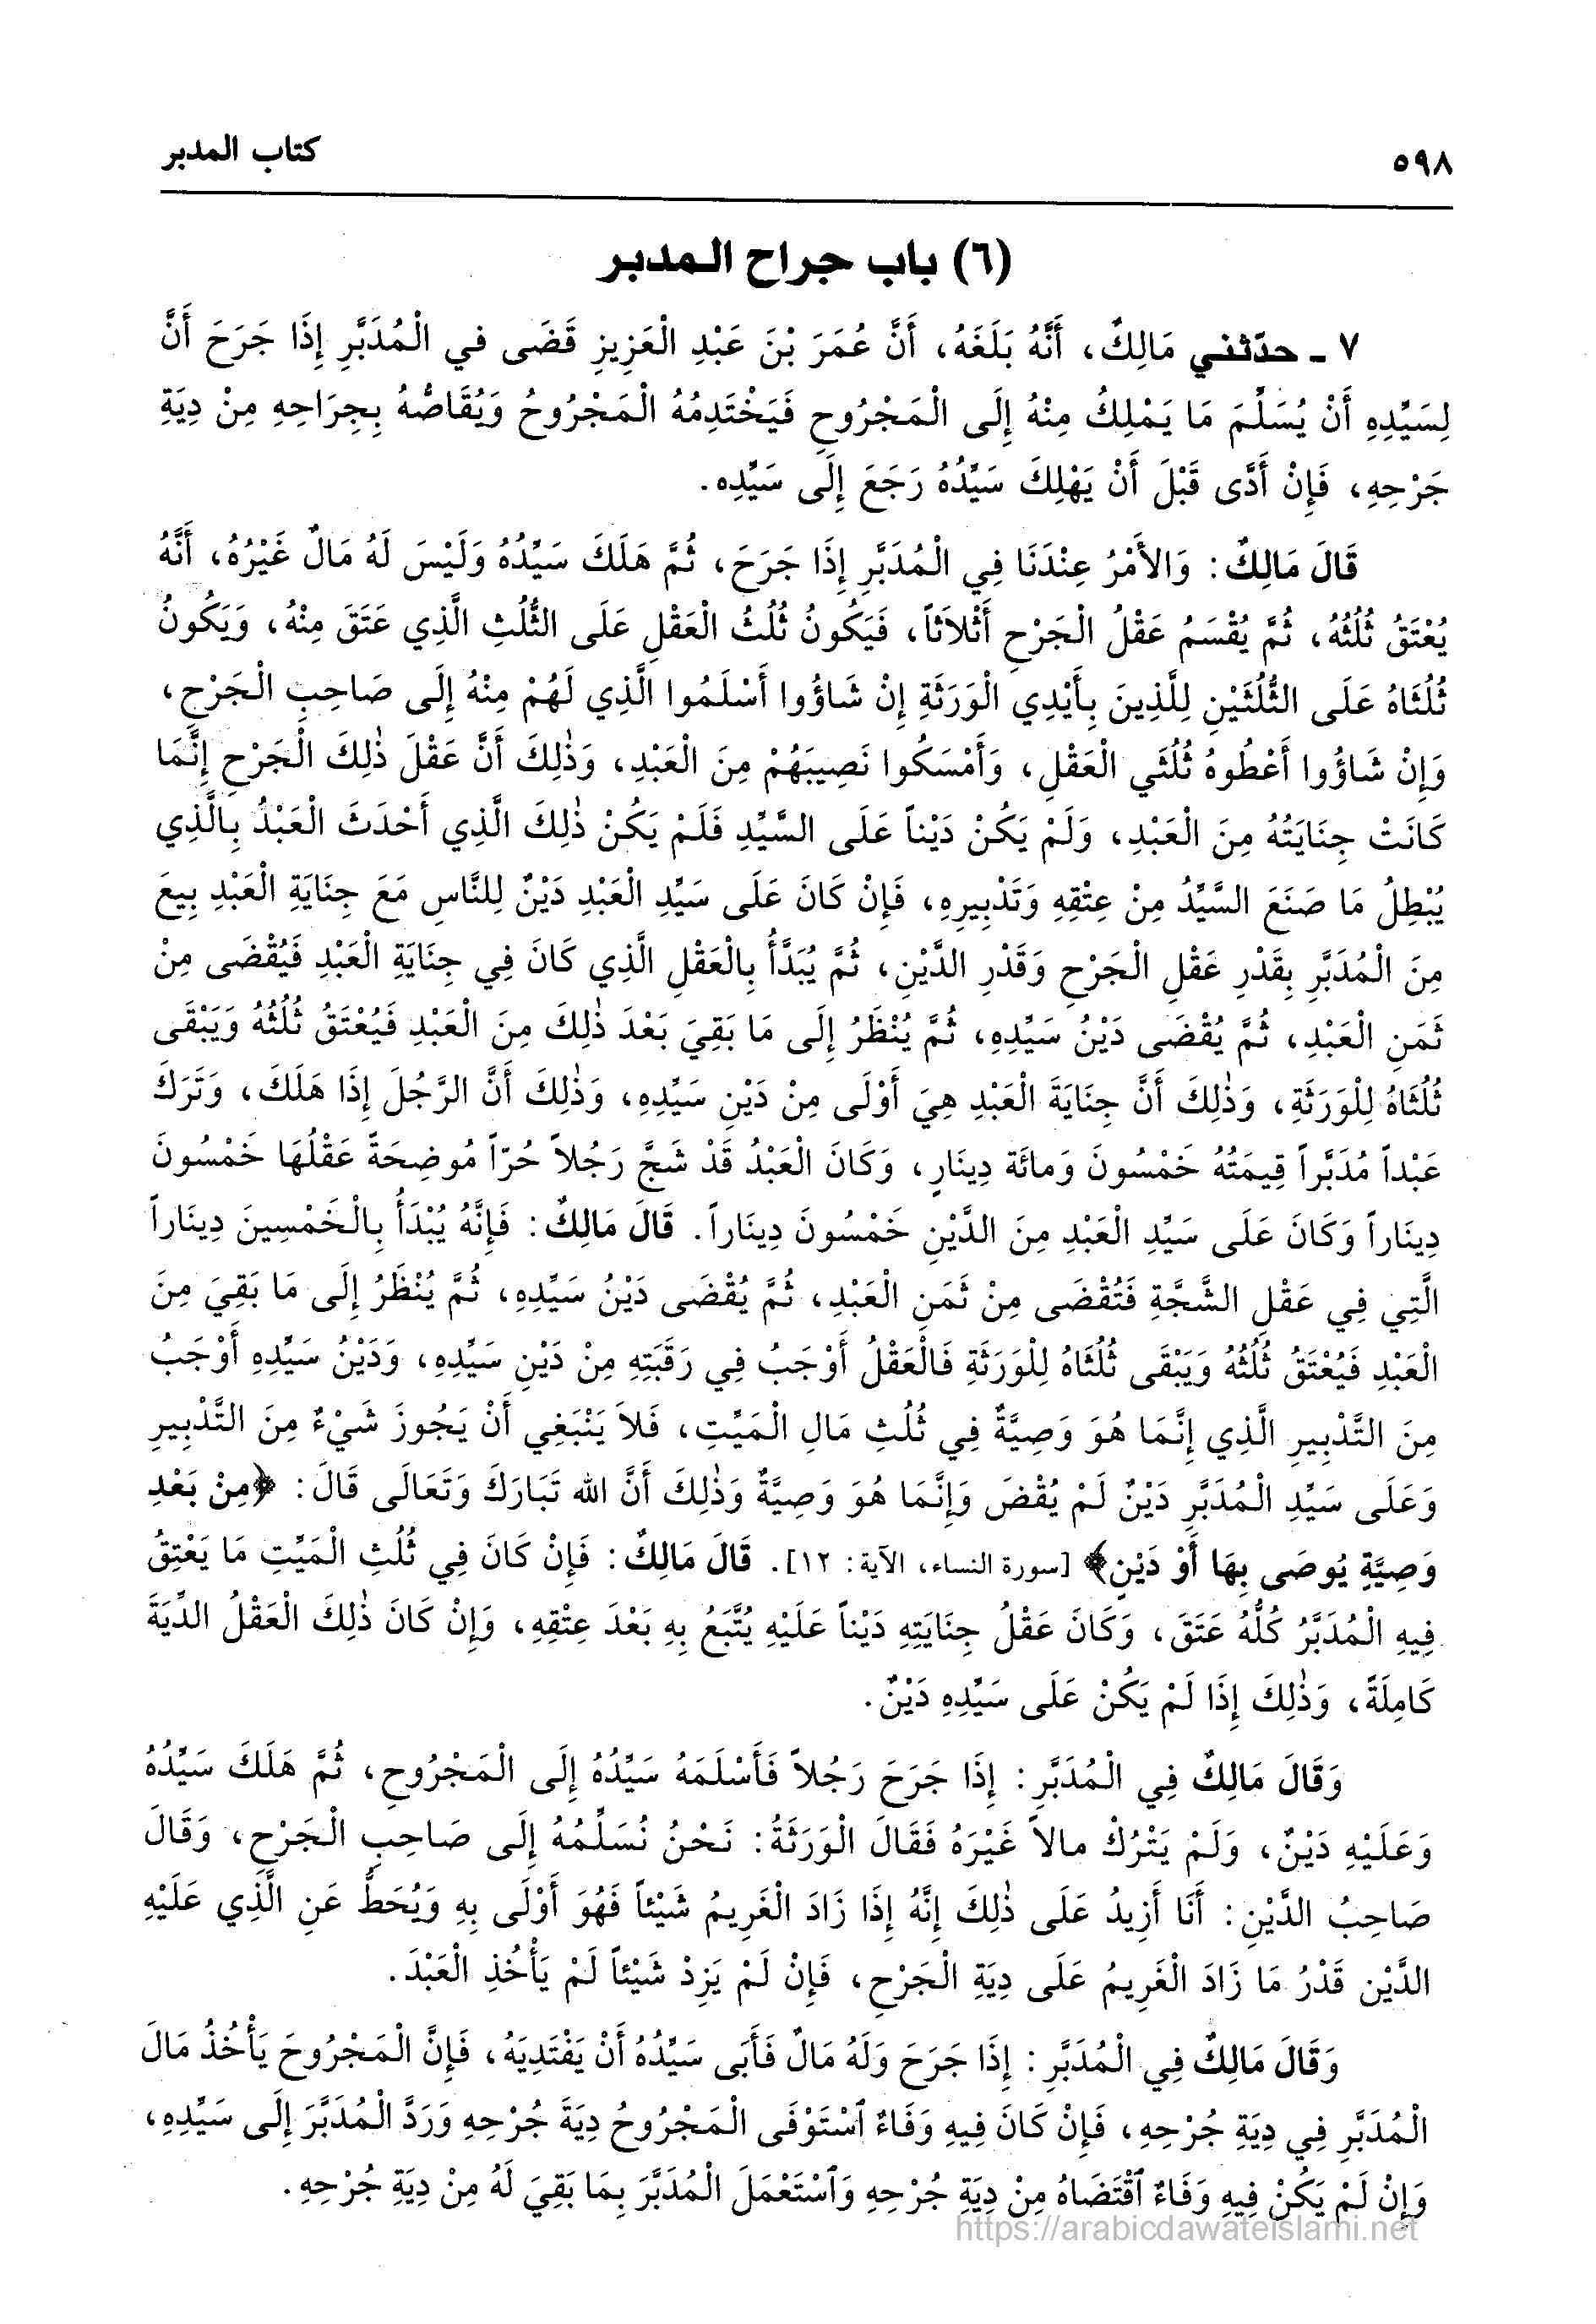 ٥٩٨
كتاب المدبر
(٦) باب جراح المدبر
٧ ـ حدّثني مَالِكٌ، أَنَّهُ بَلَغَهُ، أَنَّ عُمَرَ بْنَ عَبْدِ الْعَزِيزِ قَضَى في الْمُدَبَّرِ إِذَا جَرَحَ أَنَّ
لِسَيِّدِهِ أَنْ يُسَلِّمَ مَا يَمْلِكُ مِنْهُ إِلَى الْمَجْرُوحِ فَيَخْتَدِمُهُ الْمَجْرُوحُ وَيُقَاصُّهُ بِجِرَاحِهِ مِنْ دِيَةِ
جَرْحِهِ، فَإِنْ أَدَّى قَبْلَ أَنْ يَهْلِكَ سَيِّدُهُ رَجَعَ إِلَى سَيِّدِه.
قَالَ مَالِكٌ: وَالأَمْرُ عِنْدَنَا فِي الْمُدَبَّرِ إِذَا جَرَحَ، ثُمَّ هَلَكَ سَيِّدُهُ وَلَيْسَ لَهُ مَالٌ غَيْرُهُ، أَنَّهُ
يُعْتَقُ ثُلُثُهُ، ثُمَّ يُقْسَمُ عَقْلُ الْجَرْحِ أَثْلاَثاً، فَيَكُونُ ثُلُثُ الْعَقْلِ عَلَى الثُّلُثِ الَّذِي عَتَقَ مِنْهُ، وَيَكُونُ
ثُلُثَاهُ عَلَى الثُّلُثَيْنِ لِلَّذِينَ بِأَيْدِي الْوَرَثَةِ إِنْ شَاؤُوا أَسْلَمُوا الَّذِي لَهُمْ مِنْهُ إِلَى صَاحِبِ الْجَرْحِ،
وَإِنْ شَاؤُوا أَعْطُوهُ ثُلُثَي الْعَقْلِ، وَأَمْسَكُوا نَصِيبَهُمْ مِنَ الْعَبْدِ، وَذٰلِكَ أَنَّ عَقْلَ ذٰلِكَ الْجَرْحِ إِنَّمَا
كَانَتْ جِنَايَتُهُ مِنَ الْعَبْدِ، وَلَمْ يَكُنْ دَيْناً عَلَى السَّيِّدِ فَلَمْ يَكُنْ ذٰلِكَ الَّذِي أَحْدَثَ الْعَبْدُ بِالَّذِي
يُبْطِلُ مَا صَنَعَ السَّيِّدُ مِنْ عِتْقِهِ وَتَدْبِيرِهِ، فَإِنْ كَانَ عَلَى سَيِّدِ الْعَبْدِ دَيْنٌ لِلنَّاسِ مَعَ جِنَايَةِ الْعَبْدِ بِيعَ
مِنَ الْمُدَبَّرِ بِقَدْرِ عَقْلِ الْجَرْحِ وَقَدْرِ الدَّيْنِ، ثُمَّ يُبَدَّأُ بِالْعَقْلِ الَّذِي كَانَ فِي جِنَايَةِ الْعَبْدِ فَيُقْضَى مِنْ
ثَمَنِ الْعَبْدِ، ثُمَّ يُقْضَى دَيْنُ سَيِّدِهِ، ثُمَّ يُنْظَرُ إِلَى مَا بَقِيَ بَعْدَ ذٰلِكَ مِنَ الْعَبْدِ فَيُعْتَقُ ثُلُثُهُ وَيَبْقَى
ثُلُثَاهُ لِلْوَرَثَةِ، وَذٰلِكَ أَنَّ جِنَايَةَ الْعَبْدِ هِيَ أَوْلَى مِنْ دَيْنِ سَيِّدِهِ، وَذٰلِكَ أَنَّ الرَّجُلَ إِذَا هَلَكَ، وَتَرَكَ
عَبْداً مُدَبَّراً قِيمَتُهُ خَمْسُونَ وَمائَة دِينَارٍ، وَكَانَ الْعَبْدُ قَدْ شَجَّ رَجُلاً حُرّاً مُوضِحَةً عَقْلُهَا خَمْسُونَ
دِينَاراً وَكَانَ عَلَى سَيِّدِ الْعَبْدِ مِنَ الدَّيْنِ خَمْسُونَ دِينَاراً. قَالَ مَالِكٌ: فَإِنَّهُ يُبْدَأُ بِالْخَمْسِينَ دِينَاراً
الَّتِي فِي عَقْلِ الشَّجَّةِ فَتُقْضَى مِنْ ثَمَنِ الْعَبْدِ، ثُمَّ يُقْضَى دَيْنُ سَيِّدِهِ، ثُمَّ يُنْظَرُ إِلَى مَا بَقِيَ مِنَ
الْعَبْدِ فَيُعْتَقُ ثُلُثُهُ وَيَبْقَى ثُلُثَاهُ لِلْوَرَثَةِ فَالْعَقْلُ أَوْجَبُ فِي رَقَبَتِهِ مِنْ دَيْنِ سَيِّدِهِ، وَدَيْنُ سَيِّدِهِ أَوْجَبُ
مِنَ التَّدْبِيرِ الَّذِي إِنَّمَا هُوَ وَصِيَّةٌ فِي ثُلُثِ مَالِ الْمَيِّتِ، فَلاَ يَنْبَغِي أَنْ يَجُوزَ شَيْءٌ مِنَ التَّدْبِيرِ
وَعَلَى سَيِّدِ الْمُدَبَّرِ دَيْنٌ لَمْ يُقْضَ وَإِنَّمَا هُوَ وَصِيَّةٌ وَذٰلِكَ أَنَّ الله تَبَارَكَ وَتَعَالَى قَالَ: ﴿مِنْ بَعْدِ
وَصِيَّةٍ يُوصَى بِهَا أَوْ دَيْنٍ﴾ [سورة النساء، الآية: ١٢]. قَالَ مَالِكٌ: فَإِنْ كَانَ فِي ثُلُثِ الْمَيِّتِ مَا يَعْتِقُ
فِيهِ الْمُدَبَّرُ كُلُّهُ عَتَقَ، وَكَانَ عَقْلُ جِنَايَتِهِ دَيْناً عَلَيْهِ يُتَّبَعُ بِهِ بَعْدَ عِتْقِهِ، وَإِنْ كَانَ ذٰلِكَ الْعَقْلُ الدِّيَةَ
كَامِلَةً، وَذٰلِكَ إِذَا لَمْ يَكُنْ عَلَى سَيِّدِهِ دَيْنٌ.
وَقَالَ مَالِكٌ فِي الْمُدَبَّرِ: إِذَا جَرَحَ رَجُلاً فَأَسْلَمَهُ سَيِّدُهُ إِلَى الْمَجْرُوحِ، ثُمَّ هَلَكَ سَيِّدُهُ
وَعَلَيْهِ دَيْنٌ، وَلَمْ يَتْرُكْ مالاً غَيْرَهُ فَقَالَ الْوَرَثَةُ: نَحْنُ نُسَلِّمُهُ إِلَى صَاحِبِ الْجَرْحِ، وَقَالَ
صَاحِبُ الدَّيْنِ: أَنَا أَزِيدُ عَلَى ذٰلِكَ إِنَّهُ إِذَا زَادَ الْغَرِيمُ شَيْئاً فَهُوَ أَوْلَى بِهِ وَيُحَطُّ عَنِ الَّذِي عَلَيْهِ
الدَّيْن قَدْرُ مَا زَادَ الْغَرِيمُ عَلَى دِيَةِ الْجَرْحِ، فَإِنْ لَمْ يَزِدْ شَيْئاً لَمْ يَأْخُذِ الْعَبْدَ.
وَقَالَ مَالِكٌ فِي الْمُدَبَّرِ: إِذَا جَرَحَ وَلَهُ مَالٌ فَأَبَى سَيِّدُهُ أَنْ يَفْتَدِيَهُ، فَإِنَّ الْمَجْرُوحَ يَأْخُذُ مَالَ
الْمُدَبَّرِ فِي دِيَةِ جُرْحِهِ، فَإِنْ كَانَ فِيهِ وَفَاءٌ ٱسْتَوْفَى الْمَجْرُوحُ دِيَةَ جُرْحِهِ وَرَدَّ الْمُدَبَّرَ إِلَى سَيِّدِهِ،
وَإِنْ لَمْ يَكُنْ فِيهِ وَفَاءٌ ٱقْتَضَاهُ مِنْ دِيَةِ جُرْحِهِ وَٱسْتَعْمَلَ الْمُدَبَّرَ بِمَا بَقِيَ لَهُ مِنْ دِيَةِ جُرْحِهِ.
https://arabicdawateislami.net